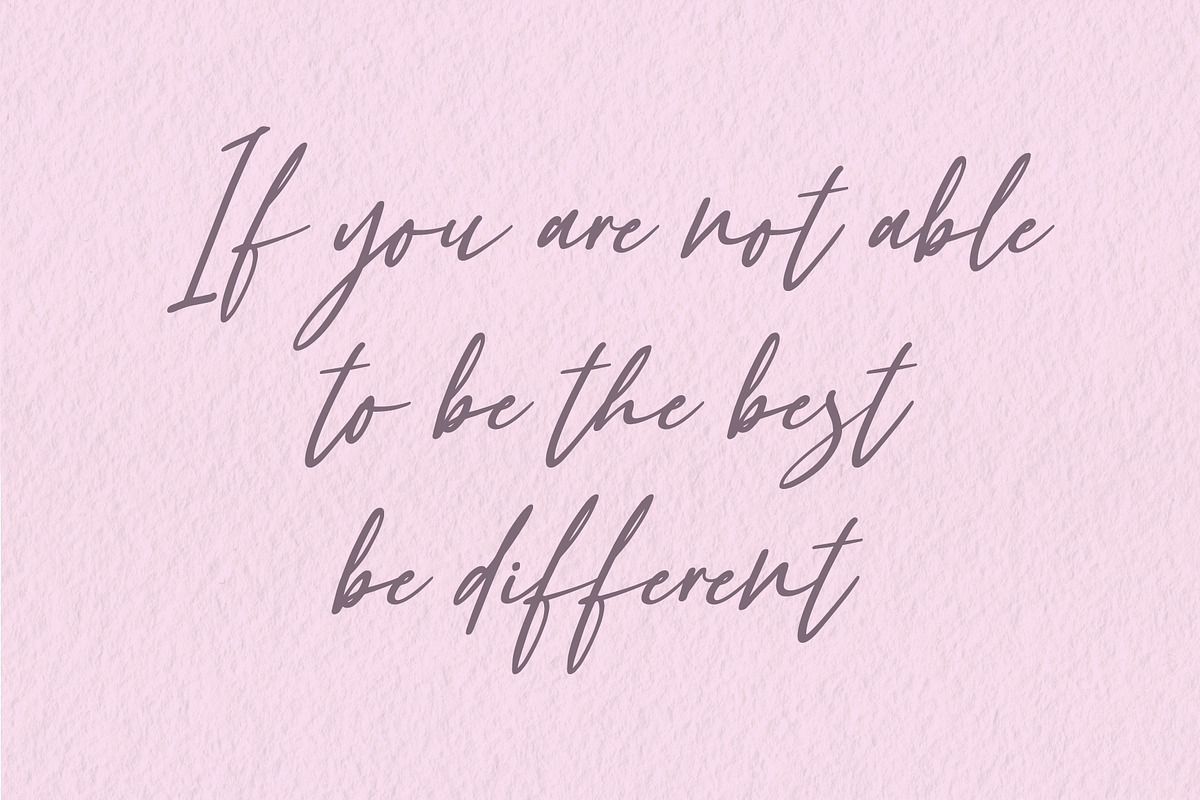 If you are not able
to be the best
be different